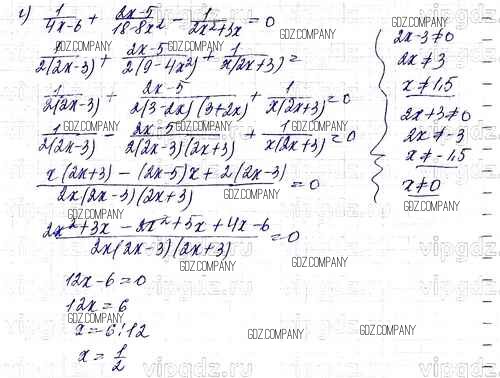 г) 1/(4x-6) + (2x-5)/(18-8x²) - 1/(2x²+3x) = 0
1/(2(2x-3)) + (2x-5)/(2(9-4x²)) + 1/(x(2x+3)) =
1/(2(2x-3)) + (2x-5)/(2(3-2x)(3+2x)) + 1/(x(2x+3)) = 0
1/(2(2x-3)) - (2x-5)/(2(2x-3)(2x+3)) + 1/(x(2x+3)) = 0
(x(2x+3) - (2x-5)x + 2(2x-3))/(2x(2x-3)(2x+3)) = 0
(2x²+3x - 2x²+5x + 4x-6)/(2x(2x-3)(2x+3)) = 0
12x-6=0
12x=6
x=6:12
x=1/2
2x-3≠0
2x≠3
x≠1,5
2x+3≠0
2x≠-3
x≠-1,5
x≠0
GDZ.COMPANY
vipgdz.ru